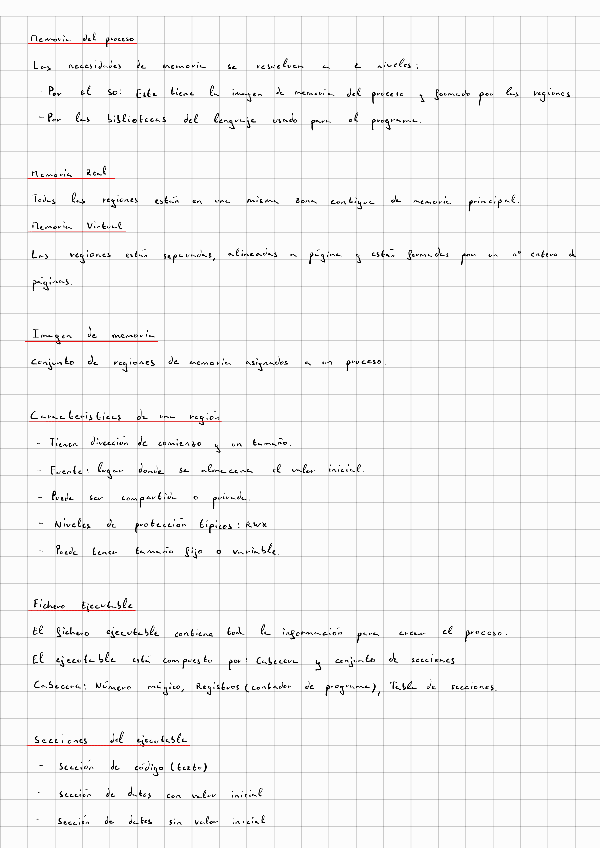 Memoria del proceso
Las necesidades de memoria se resuelven a 2 niveles:
- Por el SO: Este tiene la imagen de memoria del proceso y formado por las regiones
- Por las bibliotecas del lenguaje usado para el programa.
Memoria Real
Todas las regiones están en una misma zona contigua de memoria principal.
Memoria Virtual
Las regiones están separadas, alineadas a página y están formadas por un nº entero de
páginas.
Imagen de memoria
Conjunto de regiones de memoria asignados a un proceso.
Características de una región
- Tienen dirección de comienzo y un tamaño.
- Fuente: lugar donde se almacena el valor inicial.
- Puede ser compartida o privada.
- Niveles de protección típicos: RWX
- Puede tener tamaño fijo o variable.
Fichero Ejecutable
El fichero ejecutable contiene toda la información para crear el proceso.
El ejecutable está compuesto por: Cabecera y conjunto de secciones
Cabecera: Número mágico, Registros (contador de programa), Tabla de secciones.
Secciones del ejecutable
- Sección de código (texto)
- Sección de datos con valor inicial
- Sección de datos sin valor inicial